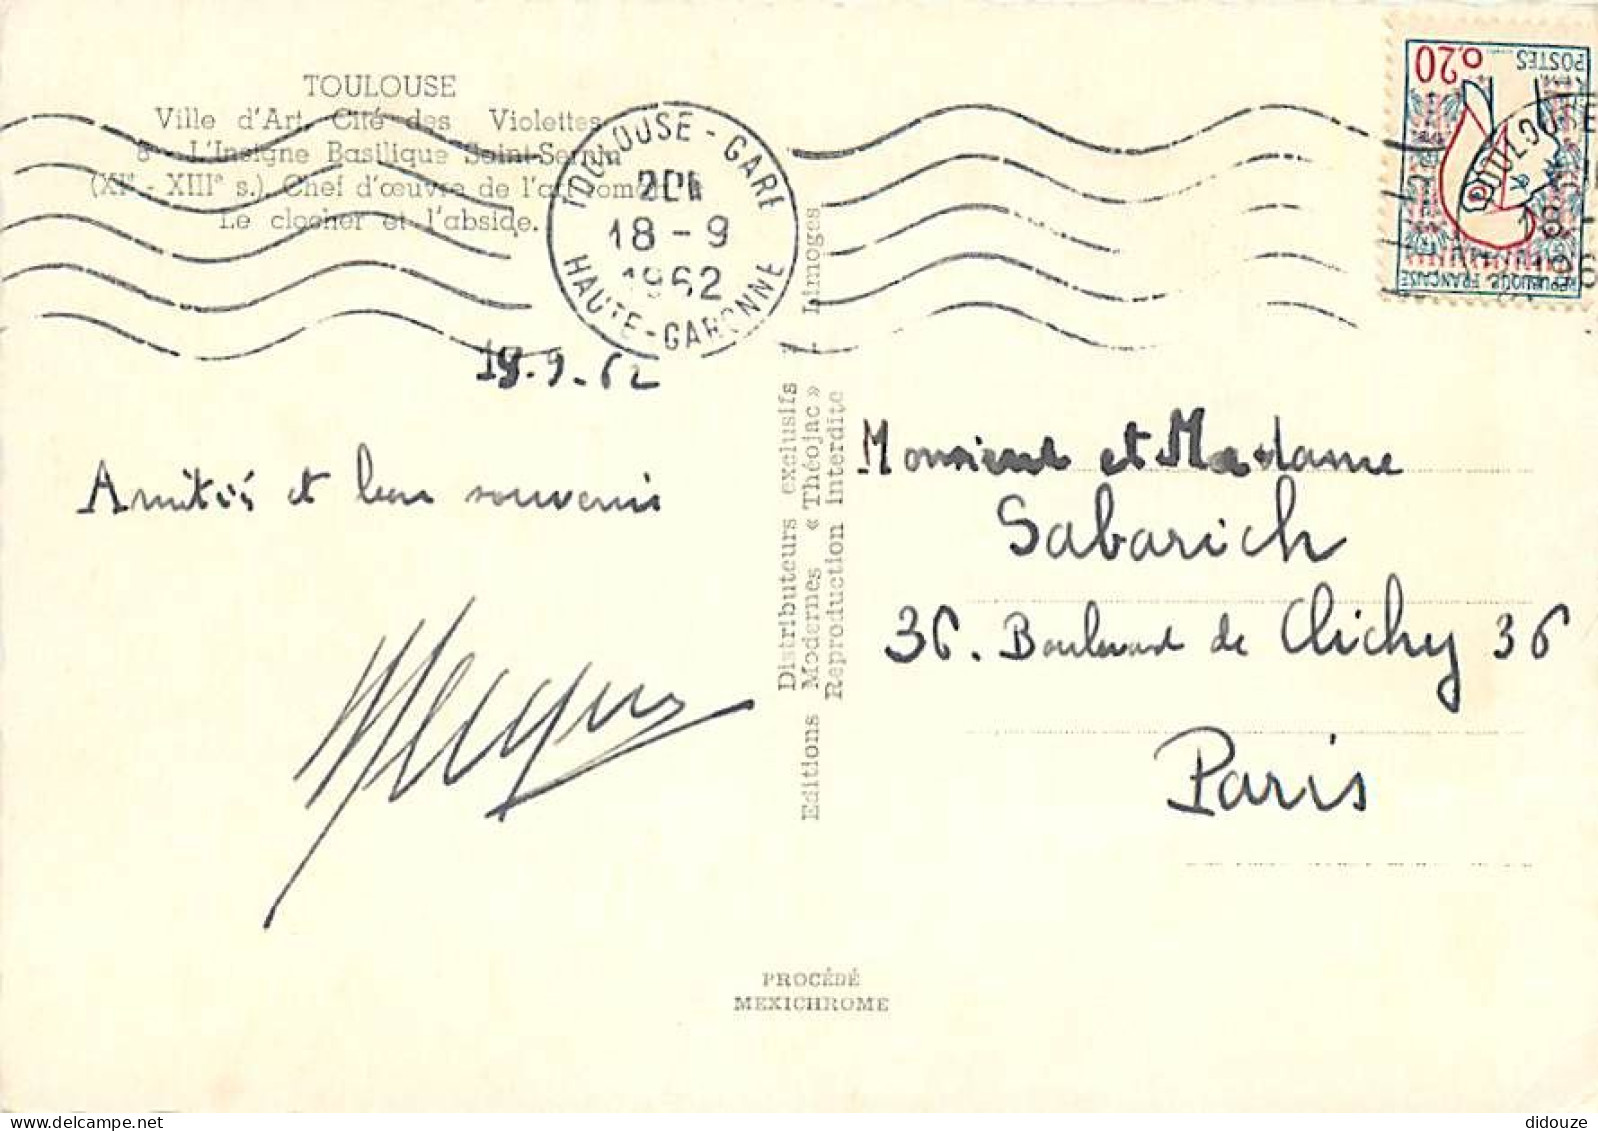 TOULOUSE
Ville d'Art, Cité des Violettes
8 - L'Insigne Basilique Saint-Sernin
(XIᵉ - XIIIᵉ s.). Chef d'œuvre de l'art roman
Le clocher et l'abside.
TOULOUSE - GARE
18 - 9
1962
HAUTE-GARONNE
0,20
POSTES
REPUBLIQUE FRANÇAISE
18.9.62
Amitiés et bon souvenir
Distributeurs exclusifs
Editions Modernes « Théojac » - Limoges
Reproduction interdite
Monsieur et Madame
Sabarich
36. Boulevard de Clichy 36
Paris
PROCÉDÉ
MEXICHROME
didouze @ delcampe.net